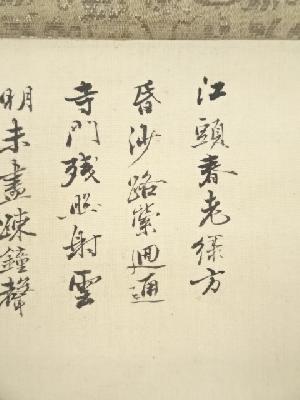 江頭春老緑方
昏沙路縈迴通
寺門残照射雲
明未盡疎鐘聲